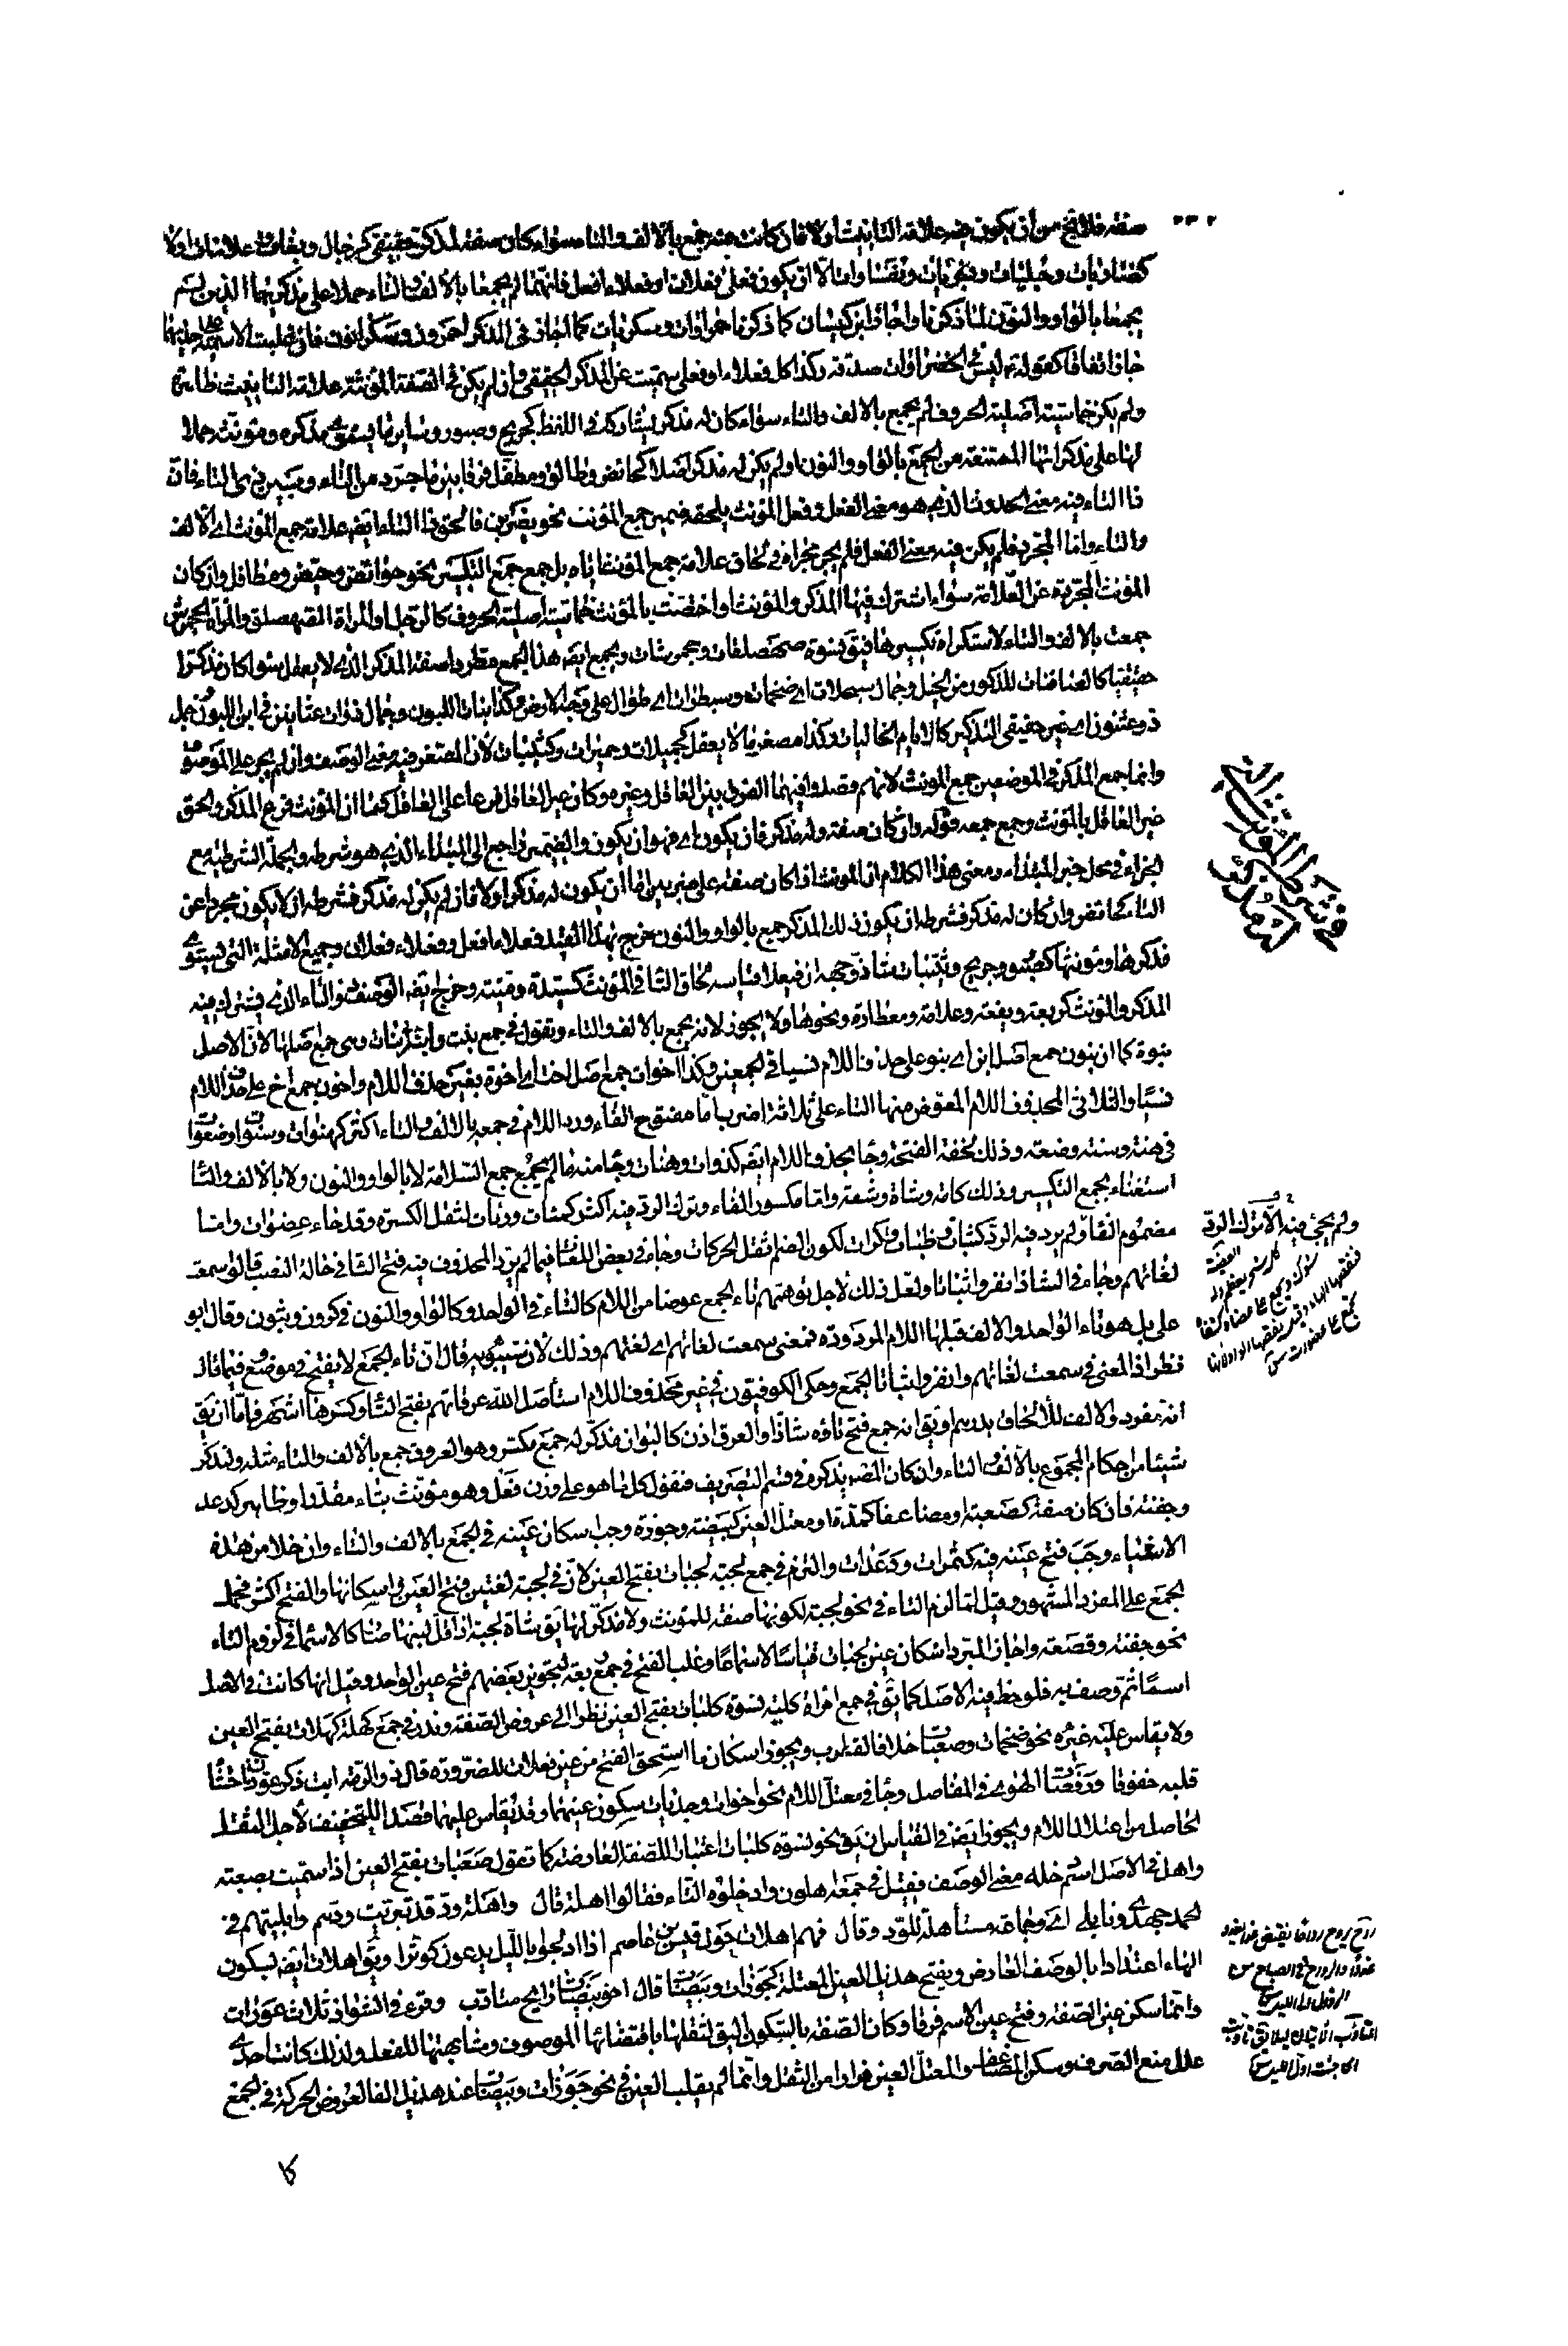 صفة فلا يخ من أن يكون فيه علامة التأنيث أولا فإن كانت فيه جمع بالألف والتاء سواء كان صفة لمذكر حقيقي كرجال ربعات وعلامات أولا
كضاربات وحبليات ونفساوات إلا أن يكون فعلى فعلان أو فعلاء أفعل فإنهما لم يجمعا بالألف والتاء حملا على مذكريهما الذين لم
يجمعا بالواو والنون لما ذكرنا وأجاز ابن كيسان كما ذكرنا حمراوات وسكريات كما أجاز في المذكر أحمرون وسكرانون فإن غلبت الاسمية
جاز اتفاقا كقوله ع ليس في الخضراوات صدقة وكذا كل فعلاء أو فعلى سميت غير المذكر الحقيقي وإن لم يكن في الصفة المؤنثة علامة التأنيث ظاهرة
ولم يكن خماسية أصلية الحروف لم يجمع بالألف والتاء سواء كان له مذكر يشاركه في اللفظ كجريح وصبور وسائر ما يستوي مذكره ومؤنثه حملا
لها على مذكراتها الممتنعة من الجمع بالواو والنون أو لم يكن له مذكر أصلا كحائض وطالق ومطفل فرقا بين ما جرد من التاء وبين ذي التاء فإن
ذا التاء فيه معنى الحدوث الذي هو معنى الفعل وفعل المؤنث يلحقه ضمير جمع المؤنث نحو يضربن فألحق ذا التاء أيضه علامة جمع المؤنث أي الألف
والتاء وأما المجرد فلم يكن فيه معنى الفعل فلم يجر مجراه في لحاق علامة جمع المؤنث إياه بل جمع جمع التكسير نحو حوائض وحيض ومطافل وإن كان
المؤنث المجردة عن العلامة سواء اشترك فيها المذكر والمؤنث أو اختصت بالمؤنث خماسية أصلية الحروف كالرجل أو المرأة الصهصلق والمرأة الجحمرش
جمعت بالألف والتاء لاستكراه تكسيرها فيق نسوة صهصلقات وجحمرشات ويجمع أيضه هذا الجمع مطردا صفة المذكر الذي لا يعقل سواء كان مذكرا
حقيقيا كالصافنات للذكور من الخيل وجمال سبحلات أي ضخمات وسبطرات أي طوال على وجه الأرض وكذا بنات اللبون وجمال ذوات عثانين في ابن اللبون وجمل
ذو عثنون أو غير حقيقي التذكير كالأيام الخاليات وكذا مصغر ما لا يعقل كجميلات وحميرات وكتيبات لأن المصغر فيه معنى الوصف وإن لم يجر على الموصوف
وإنما جمع المذكر في الموضعين جمع المؤنث لأنهم قصدوا فيهما الفرق بين العاقل وغيره وكان غير العاقل فرعا على العاقل كما أن المؤنث فرع المذكر فألحق
غير العاقل بالمؤنث وجمع جمعه قوله وإن كان صفة وله مذكر فأن يكون أي فهو أن يكون والضمير راجع إلى المبتداء الذي هو شرطه والجملة الشرطية مع
الجزاء في محل خبر المبتداء ومعنى هذا الكلام أن المؤنث إذا كان صفة على ضربين إما أن يكون له مذكر أولا فإن لم يكن له مذكر فشرطه أن لا يكون مجردا عن
التاء كحائض وإن كان له مذكر فشرطه أن يكون ذلك المذكر جمع بالواو والنون خرج بهذا القيد فعلاء أفعل وفعلاء فعلان وجميع الأمثلة التي يستوي
مذكرها ومؤنثها كصبور وجريح
المذكر والمؤنث كربعة ويفعة وعلامة ومعطارة ونحوها ولا يجوز لأنه يجمع بالألف والتاء وتقول في جمع بنت وابنة بنات وهي جمع أصلها لأن الأصل
بنوة كما أن بنون جمع أصل ابن أي بنو على حذف اللام نسيا في الجمعين وكذا أخوات جمع أصل أخت أي أخوة بغير حذف اللام وأخون جمع أخ على حذف اللام
نسيا والثلاثي المحذوف اللام المعوض منها التاء على ثلاثة أضرب أما مفتوح الفاء ورد اللام في جمعه بالألف والتاء أكثر كهنوات وسنوات وضعوات
في هنة وسنة وضعة وذلك لخفة الفتحة وجا بحذف اللام أيضه كذوات وهنات وجا منه ما لم يجمع جمع السلامة لا بالواو والنون ولا بالألف والتاء
استغناء بجمع التكسير وذلك كأمة وشاة وشفة وأما مكسور الفاء وترك الرد فيه أكثر كمئات ورئات لثقل الكسرة وقد جاء عضوات وأما
مضموم الفاء ولم يرد فيه الرد كثبات وظبات وكرات لكون الضم أثقل الحركات وجاء في بعض اللغات فيما لم يرد المحذوف فيه فتح التا في حالة النصب قالوا سمعت
لغاتهم وجاء في الشاذ انفروا ثباتا ولعل ذلك لأجل توهمهم تاء الجمع عوضا من اللام كالتاء في الواحد وكالواو والنون في كرون وثبون وقال أبو
علي بل هو تاء الواحد والألف قبلها اللام المردودة فمعنى سمعت لغاتهم أي لغتهم وذلك لأن سيبويه قال أن تاء الجمع لا يفتح في موضع فيما قال
نظر إذ المعنى في سمعت لغاتهم وانفروا ثباتا الجمع وحكى الكوفيون في غير محذوف اللام استأصل الله عرقاتهم بفتح التا وكسرها أشهر فأما أن يق
أنه مفرد والألف للإلحاق بدرهم أو يق أنه جمع فتح تاؤه شاذا والعرق إذن كالبوان مذكر له جمع مكسر وهو العروق جمع بالألف والتاء مثله ولنذكر
شيئا من أحكام المجموع بالألف والتاء وإن كان المصه يذكره في قسم التصريف فنقول كل ما هو على وزن فعل وهو مؤنث بتاء مقدرة أو ظاهرة كدعد
وجفنة فإن كان صفة كصعبة أو مضاعفا كمدة أو معتل العين كبيضة وجوزة وجب إسكان عينه في الجمع بالألف والتاء وإن خلا من هذه
الأشياء وجب فتح عينه فيه كتمرات ودعدات والتزم في جمع لجبة لجبات بفتح العين لأن في لجبة لغتين فتح العين وإسكانها والفتح أكثر فحمل
الجمع على المفرد المشهور وقيل لما لزم التاء في نحو لجبة لكونها صفة للمؤنث ولا مذكر لها يق شاة لجبة إذا قل لبنها صار كالاسماء في لزوم التاء
نحو جفنة وقصعة وأجاز المبرد إسكان عين لجبات قياسا لا سماعا وغلب الفتح في جمع ربعة لتجويز بعضهم فتح عين الواحد وقيل أنها كانت في الأصل
اسما ثم وصف به فلوحظ فيه الأصل كما يق في جمع امرأة كلبة نسوة كلبات بفتح العين نظرا إلى عروض الصفة وندر في جمع كهلة كهلات بفتح العين
ولا يقاس عليه غيره نحو ضخمات وصعبات خلافا لقطرب ويجوز إسكان ما استحق الفتح من عين فعلات للضرورة قال ذو الرمة أبت ذكر عودن أحشاء
قلبه خفوقا ورفضات الهوى في المفاصل وجا في معتل اللام نحو أخوات وجديات سكون عينهما وقد يقاس عليهما قصدا للتخفيف لأجل الثقل
الحاصل من اعتلال اللام ويجوز أيضه في القياس أن يق نحو نسوة كلبات اعتبارا للصفة العارضة كما تقول صعبات بفتح العين إذا سميت بصعبة
وأهل في الأصل اسم دخله معنى الوصف فقيل في جمعه أهلون وأدخلوه التاء فقالوا أهلة قال وأهلة ود قد تبريت ودهم وأبليتهم في
الحمد جهدي ونايلي أي وجماعة مستأهلة للود وقال فهم أهلات حول قيس بن عاصم إذا أدلجوا بالليل يدعون كوثرا ويق أهلات أيضه بسكون
الهاء اعتدادا بالوصف العارض ويفتح هذيل العين المعتلة كجوزات وبيضات قال أخو بيضات رائح متأوب وقرئ في الشواذ ثلاث عورات
وإنما سكن عين الصفة وفتح عين الاسم فرقا وكان الصفة بالسكون أليق لثقلها باقتضائها الموصوف ومشابهتها للفعل ولذلك كانت إحدى
علل منع الصرف وسكن المضاعف والمعتل العين فرارا من الثقل وإنما لم يقلب العين في نحو جوزات وبيضات عند هذيل ألفا لعروض الحركة في الجمع
في شرط المؤنث الذي له مذكر
ولم يجئ فيه إلا ترك الرد